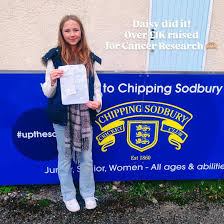 Daisy did it!
Over £1K raised
for Cancer Research
to Chipping Sodbury
CHIPPING SODBURY
#upthesod
Est 1860
Junior, Senior, Women - All ages & abilities